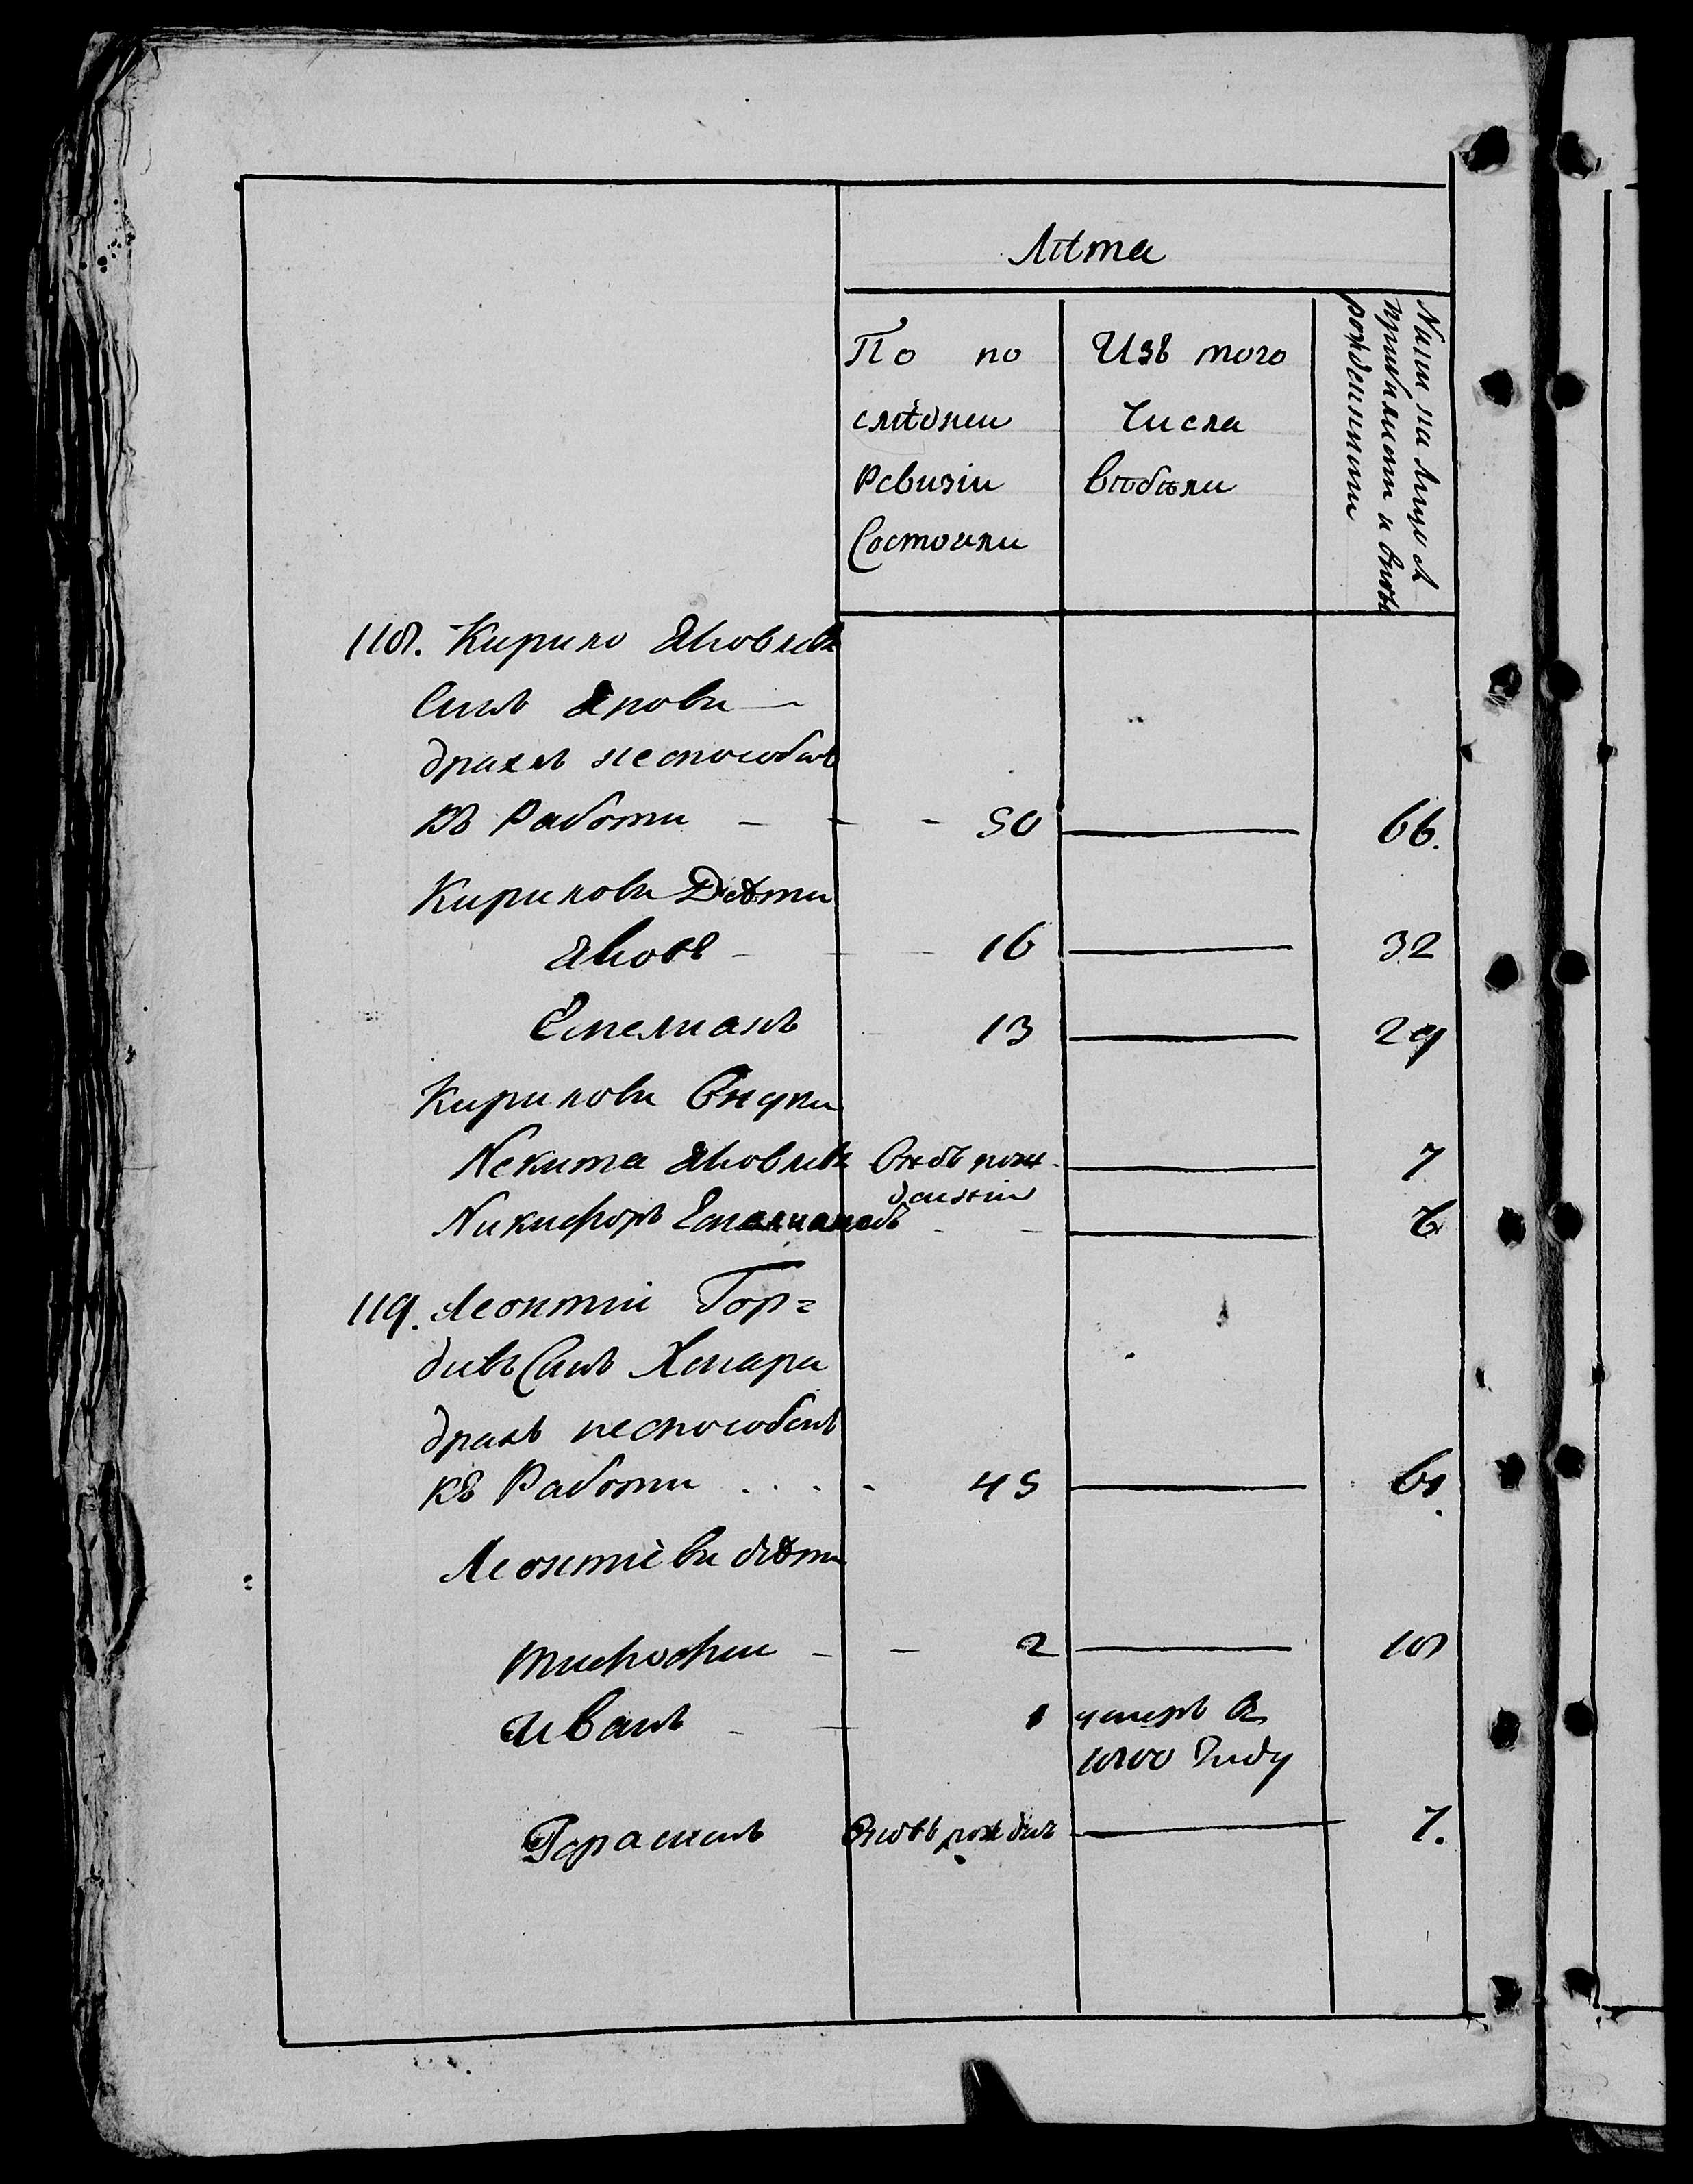 Лѣта
По по
слѣднеи
Ревизіи
Состояли
Изъ того
Числа
выбыли
Ныни на лицо с
прибилыми и вновь
рожденными
118. Кирило Яковлевъ
Синъ Якови
драхлъ неспособенъ
къ Работи - - - 50 66.
Кирилови Дѣти
Яковъ - - - 16 32
Емелианъ 13 29
Кирилови Внуки
Некита Яковлевъ Вновь рож- 7
денніи
Никифоръ Емелиановъ - - 6
119. Леонтіи Гор=
дивъ Синъ
драхлъ неспособенъ
къ Работи . . . - 45 61.
Леонтіеви дѣти
Тимофеи - - 2 18
Иванъ - - 1 умеръ В
1800 Году
Герасимъ Вновь рожден 7.